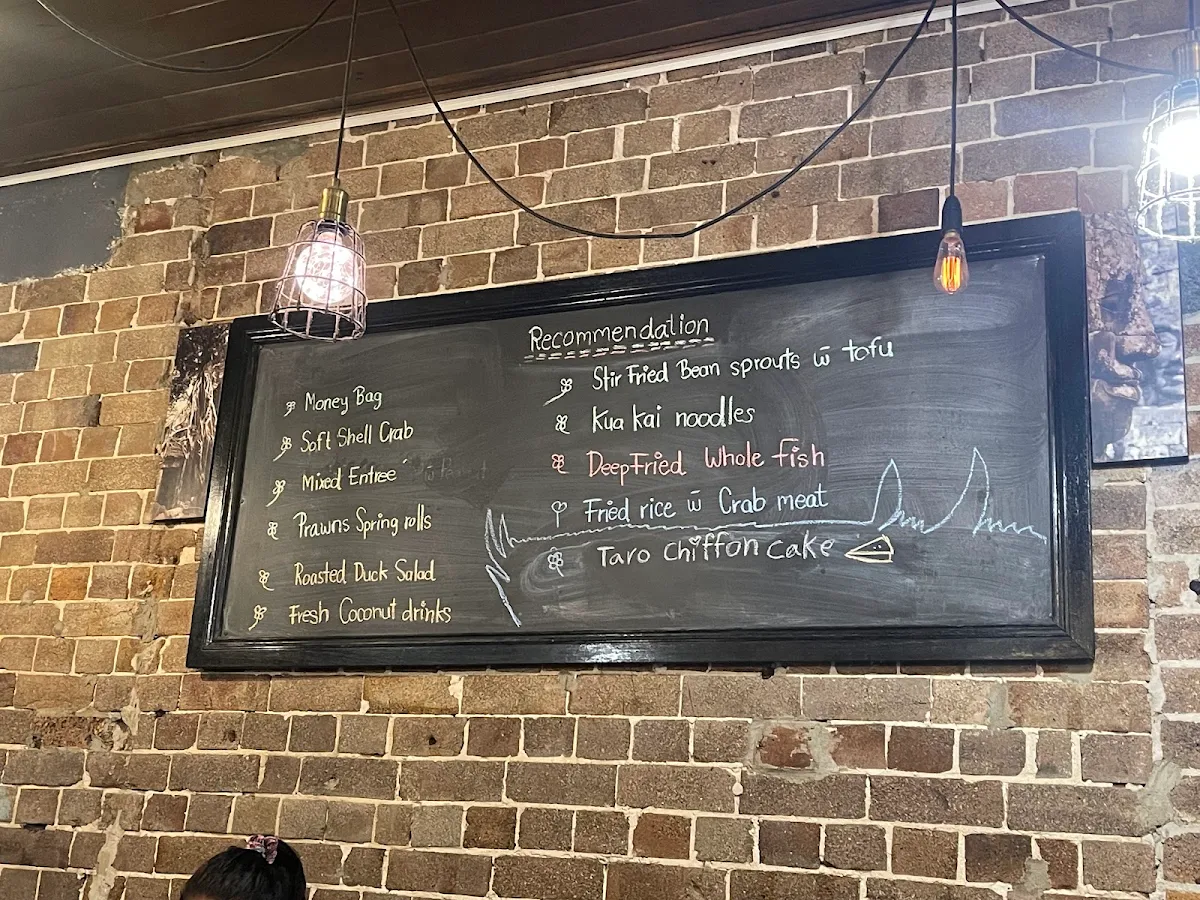 Recommendation
Money Bag
Soft Shell Crab
Mixed Entree
Prawns Spring rolls
Roasted Duck Salad
Fresh Coconut drinks
Stir Fried Bean sprouts w̄ tofu
Kua kai noodles
DeepFried Whole fish
Fried rice w̄ Crab meat
Taro Chiffon cake